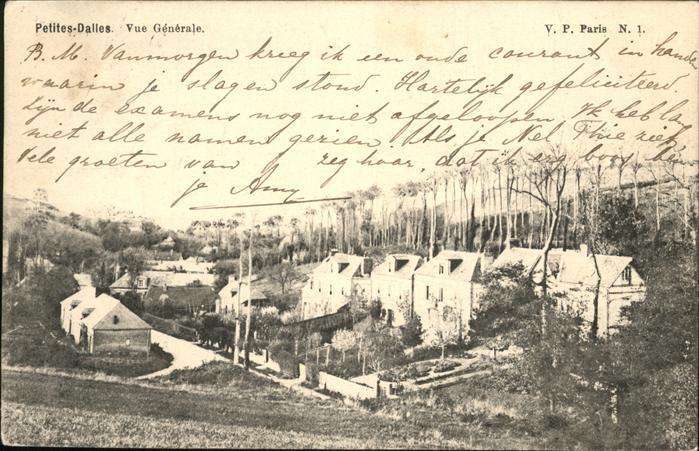 Petites-Dalles. Vue Générale.
V. P. Paris N. 1.
B. M. Vanmorgen kreeg ik een oude courant in handen
waarin je slagen stond. Hartelijk gefeliciteerd.
Zijn de examens nog niet afgeloopen, Ik heb lang
niet alle namen gezien. Als je Nel Thie ziet,
Vele groeten van zeg haar, dat ik erg boos ben
je Amy